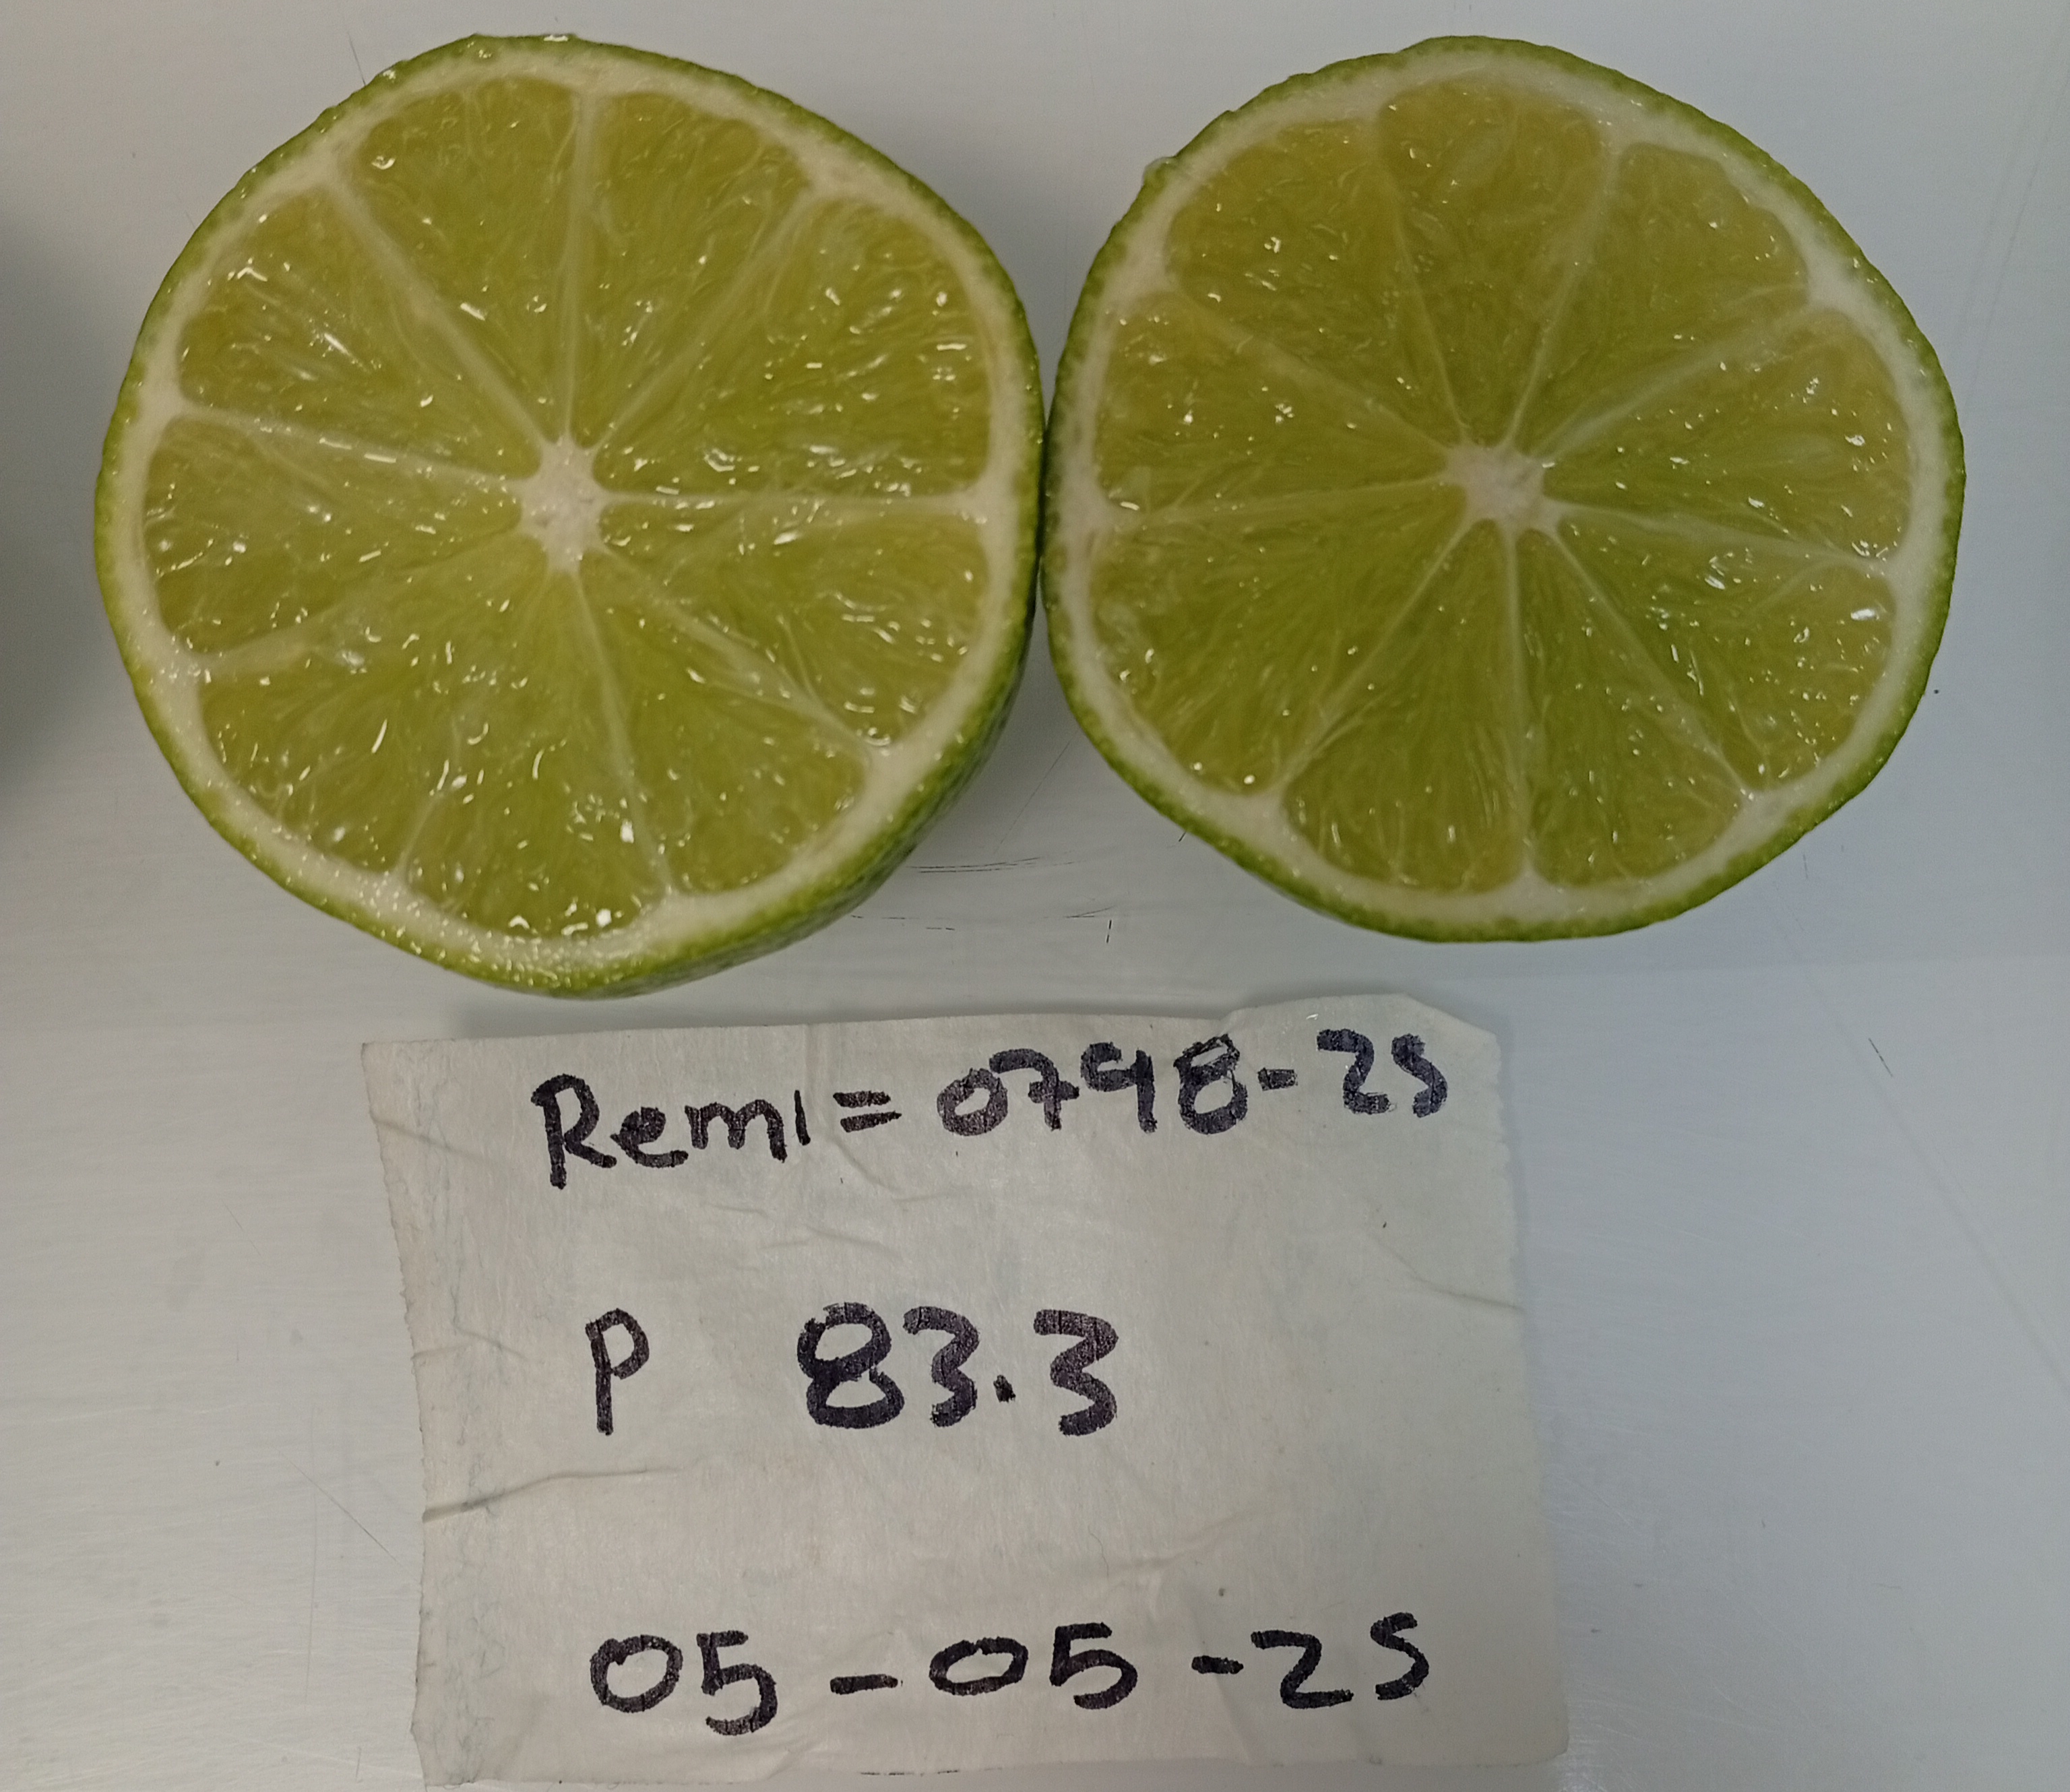 Remi = 0798-25
P 83.3
05-05-25